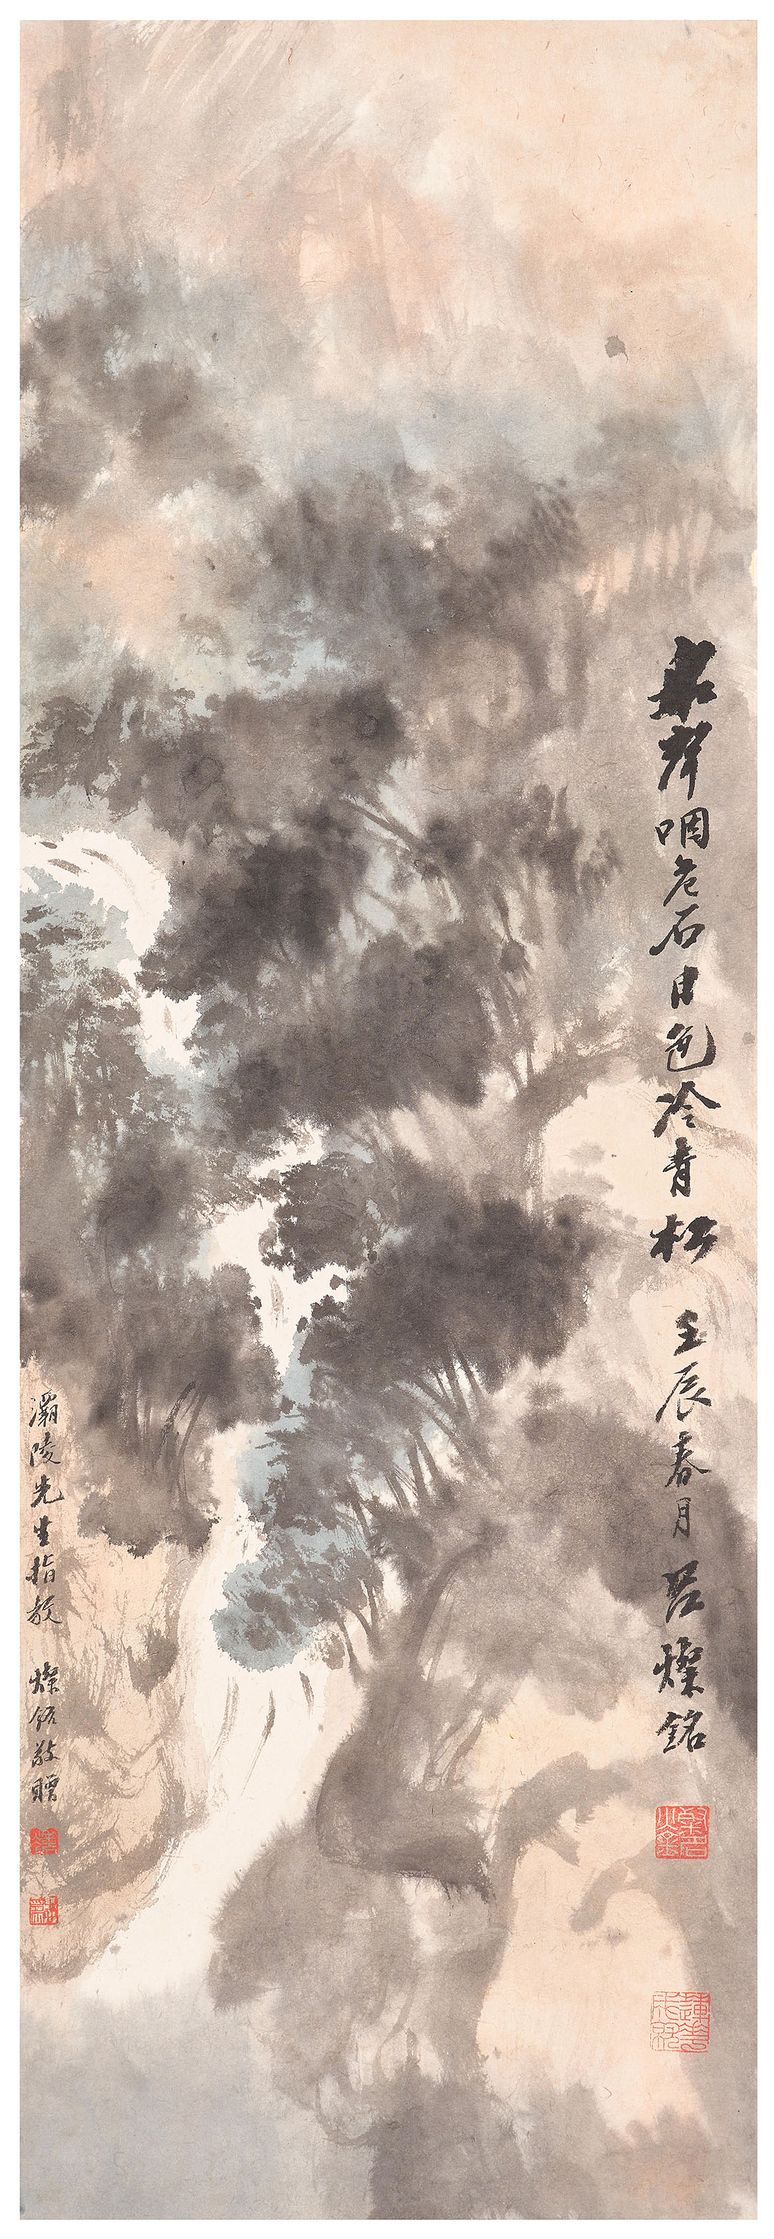 泉聲咽危石日色冷青松 壬辰春月 呂燦銘
灞陵先生指教 燦銘敬贈